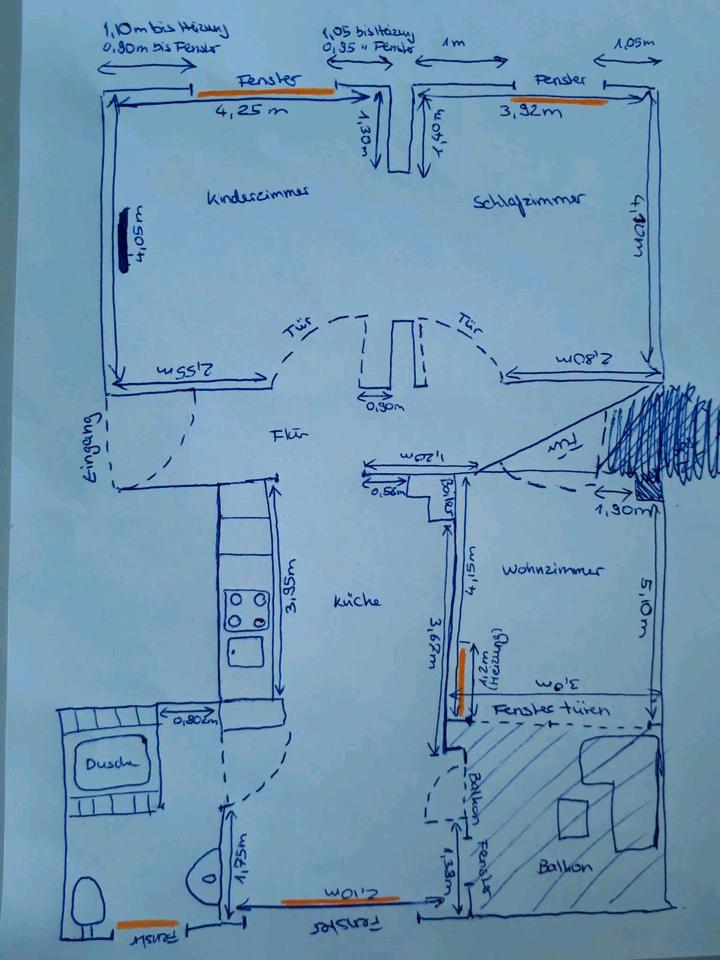 1,10m bis Heizung
0,90m bis Fenster
1,05 bis Heizung
0,95 " Fenster
1m
1,05m
Fenster
Fenster
4,25m
3,92m
1,30m
1,40m
Kinderzimmer
Schlafzimmer
4,05m
4,10m
Tür
Tür
2,55m
2,80m
0,90m
Eingang
Flur
Tür
1,20m
0,56m
1,90m
3,95m
4,15m
Wohnzimmer
Küche
5,10m
3,67m
1,12m
(Heizung)
3,0m
0,802m
Fenster türen
Dusche
Balkon
1,75m
1,38m
Fenster
Balkon
2,10m
Fenster
Fenster